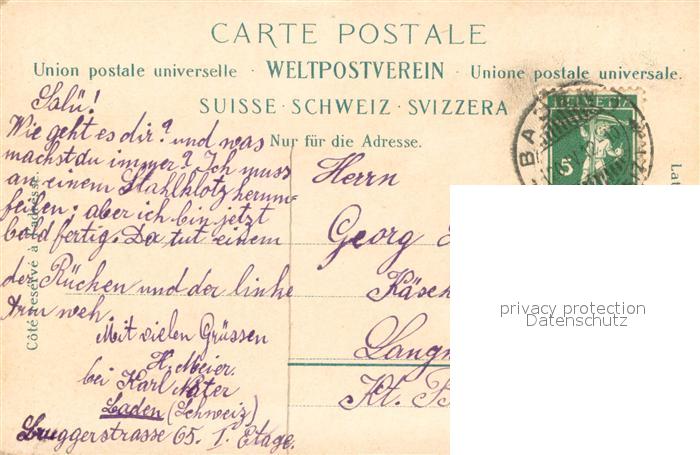 CARTE POSTALE
Union postale universelle · WELTPOSTVEREIN · Unione postale universale.
SUISSE · SCHWEIZ · SVIZZERA
Nur für die Adresse.
Côté réservé à l'adresse.
Salü!
Wie geht es dir? und was
machst du immer? Ich muss
an einem Stahlklotz herum-
feilen; aber ich bin jetzt
bald fertig. Da tut einem
der Rüchen und der linke
Arm weh.
Mit vielen Grüssen
H. Meier.
bei Karl Nater
Baden (Schweiz)
Bruggerstrasse 65. I. Etage.
Herrn
Georg
Käse
Lang
Kt. B
HELVETIA
5
BAD
Lat
privacy protection
Datenschutz